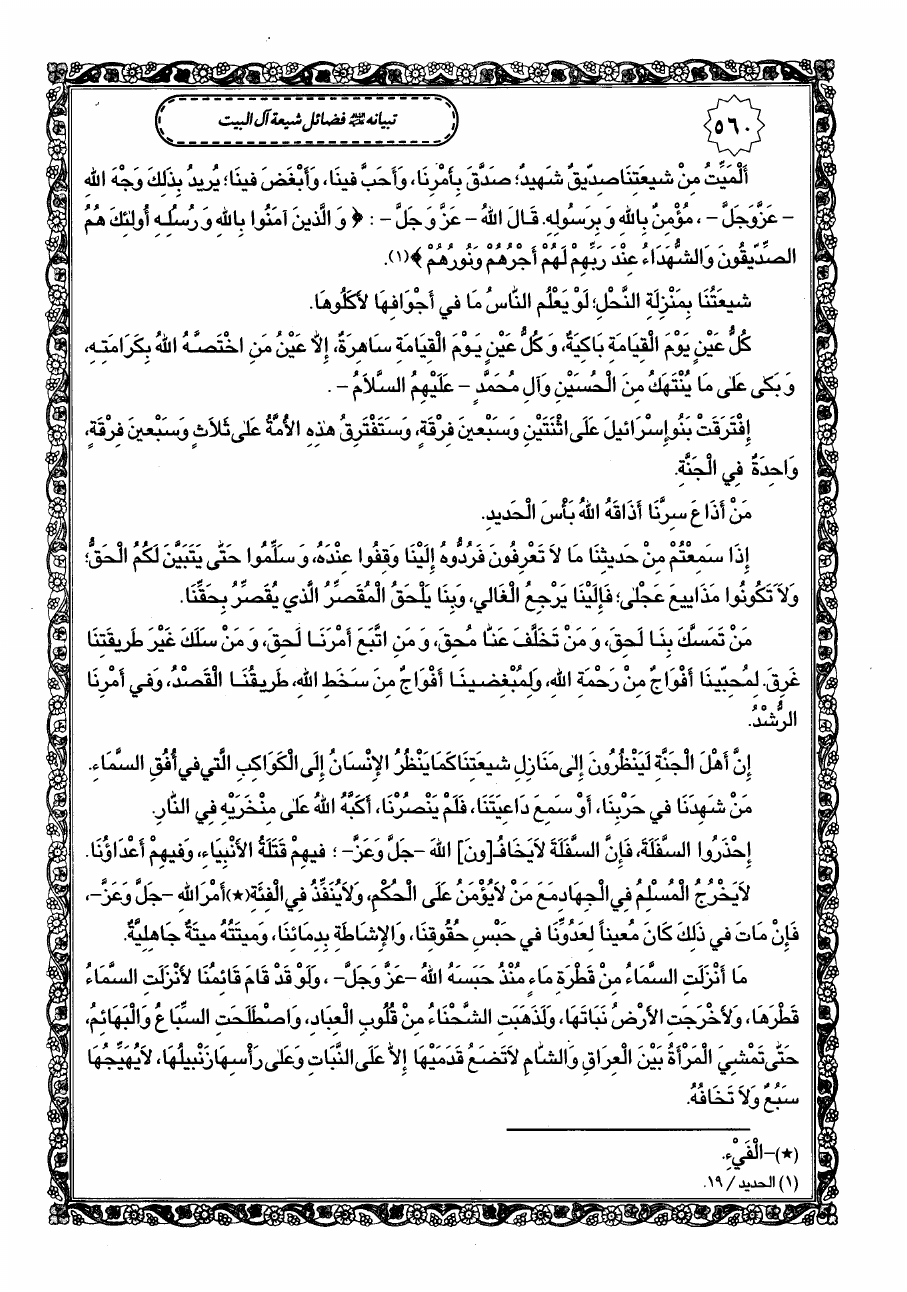 ٥٦٠
تبيانه ﷺ فضائل شيعة آل البيت
أَلْمَيِّتُ مِنْ شيعَتِنَا صِدّيقٌ شَهيدٌ؛ صَدَّقَ بِأَمْرِنَا، وَأَحَبَّ فينَا، وَأَبْغَضَ فينَا؛ يُريدُ بِذَلِكَ وَجْهَ اللهِ
- عَزَّوَجَلَّ - ، مُؤْمِنٌ بِاللهِ وَ بِرَسُولِهِ. قَالَ اللهُ - عَزَّ وَ جَلَّ - : ﴿ وَ الَّذينَ آمَنُوا بِاللهِ وَ رُسُلِهِ أُولٰئِكَ هُمُ
الصِّدّيقُونَ وَالشُّهَدَاءُ عِنْدَ رَبِّهِمْ لَهُمْ أَجْرُهُمْ وَنُورُهُمْ ﴾(١).
شيعَتُنَا بِمَنْزِلَةِ النَّحْلِ؛ لَوْ يَعْلَمُ النَّاسُ مَا في أَجْوَافِهَا لأَكَلُوهَا.
كُلُّ عَيْنٍ يَوْمَ الْقِيَامَةِ بَاكِيَةٌ، وَ كُلُّ عَيْنٍ يَوْمَ الْقِيَامَةِ سَاهِرَةٌ، إِلاَّ عَيْنُ مَنِ اخْتَصَّهُ اللهُ بِكَرَامَتِهِ،
وَ بَكىٰ عَلىٰ مَا يُنْتَهَكُ مِنَ الْحُسَيْنِ وَآلِ مُحَمَّدٍ - عَلَيْهِمُ السَّلاَمُ - .
إِفْتَرَقَتْ بَنُو إِسْرَائيلَ عَلَى اثْنَتَيْنِ وَسَبْعينَ فِرْقَةٍ، وَسَتَفْتَرِقُ هٰذِهِ الأُمَّةُ عَلىٰ ثَلاَثٍ وَسَبْعينَ فِرْقَةٍ،
وَاحِدَةٌ فِي الْجَنَّةِ.
مَنْ أَذَاعَ سِرَّنَا أَذَاقَهُ اللهُ بَأْسَ الْحَديدِ.
إِذَا سَمِعْتُمْ مِنْ حَديثِنَا مَا لاَ تَعْرِفُونَ فَرُدُّوهُ إِلَيْنَا وَقِفُوا عِنْدَهُ، وَ سَلِّمُوا حَتّٰى يَتَبَيَّنَ لَكُمُ الْحَقُّ؛
وَلاَ تَكُونُوا مَذَاييعَ عَجْلىٰ؛ فَإِلَيْنَا يَرْجِعُ الْغَالي، وَبِنَا يَلْحَقُ الْمُقَصِّرُ الَّذي يُقَصِّرُ بِحَقِّنَا.
مَنْ تَمَسَّكَ بِنَا لَحِقَ، وَ مَنْ تَخَلَّفَ عَنَّا مُحِقَ، وَ مَنِ اتَّبَعَ أَمْرَنَا لَحِقَ، وَ مَنْ سَلَكَ غَيْرَ طَريقَتِنَا
غَرِقَ. لِمُحِبّينَا أَفْوَاجٌ مِنْ رَحْمَةِ اللهِ، وَلِمُبْغِضينَا أَفْوَاجٌ مِنْ سَخَطِ اللهِ، طَريقُنَا الْقَصْدُ، وَفي أَمْرِنَا
الرُّشْدُ.
إِنَّ أَهْلَ الْجَنَّةِ لَيَنْظُرُونَ إِلىٰ مَنَازِلِ شيعَتِنَا كَمَا يَنْظُرُ الإِنْسَانُ إِلَى الْكَوَاكِبِ الَّتي في أُفُقِ السَّمَاءِ.
مَنْ شَهِدَنَا في حَرْبِنَا، أَوْ سَمِعَ دَاعِيَتَنَا، فَلَمْ يَنْصُرْنَا، أَكَبَّهُ اللهُ عَلىٰ مِنْخَرَيْهِ فِي النَّارِ.
إِحْذَرُوا السَّفَلَةَ، فَإِنَّ السَّفَلَةَ لاَيَخَافُـ[ونَ] اللهَ -جَلَّ وَعَزَّ- ؛ فيهِمْ قَتَلَةُ الأَنْبِيَاءِ، وَفيهِمْ أَعْدَاؤُنَا.
لاَيَخْرُجُ الْمُسْلِمُ فِي الْجِهَادِ مَعَ مَنْ لاَيُؤْمَنُ عَلَى الْحُكْمِ، وَلاَيُنَفِّذُ فِي الْفِئَةِ(★)أَمْرَ اللهِ -جَلَّ وَعَزَّ-،
فَإِنْ مَاتَ في ذَلِكَ كَانَ مُعيناً لِعَدُوِّنَا في حَبْسِ حُقُوقِنَا، وَالإِشَاطَةِ بِدِمَائِنَا، وَميتَتُهُ ميتَةٌ جَاهِلِيَّةٌ.
مَا أَنْزَلَتِ السَّمَاءُ مِنْ قَطْرَةِ مَاءٍ مُنْذُ حَبَسَهُ اللهُ -عَزَّ وَجَلَّ- ، وَلَوْ قَدْ قَامَ قَائِمُنَا لأَنْزَلَتِ السَّمَاءُ
قَطْرَهَا، وَلأَخْرَجَتِ الأَرْضُ نَبَاتَهَا، وَلَذَهَبَتِ الشَّحْنَاءُ مِنْ قُلُوبِ الْعِبَادِ، وَاصْطَلَحَتِ السِّبَاعُ وَالْبَهَائِمُ،
حَتّٰى تَمْشِيَ الْمَرْأَةُ بَيْنَ الْعِرَاقِ وَالشَّامِ لاَتَضَعُ قَدَمَيْهَا إِلاَّ عَلَى النَّبَاتِ وَعَلىٰ رَأْسِهَا زَنْبيلُهَا، لاَيُهَيِّجُهَا
سَبُعٌ وَلاَ تَخَافُهُ.
(★)-الْفَيْءِ.
(١) الحديد / ١٩.